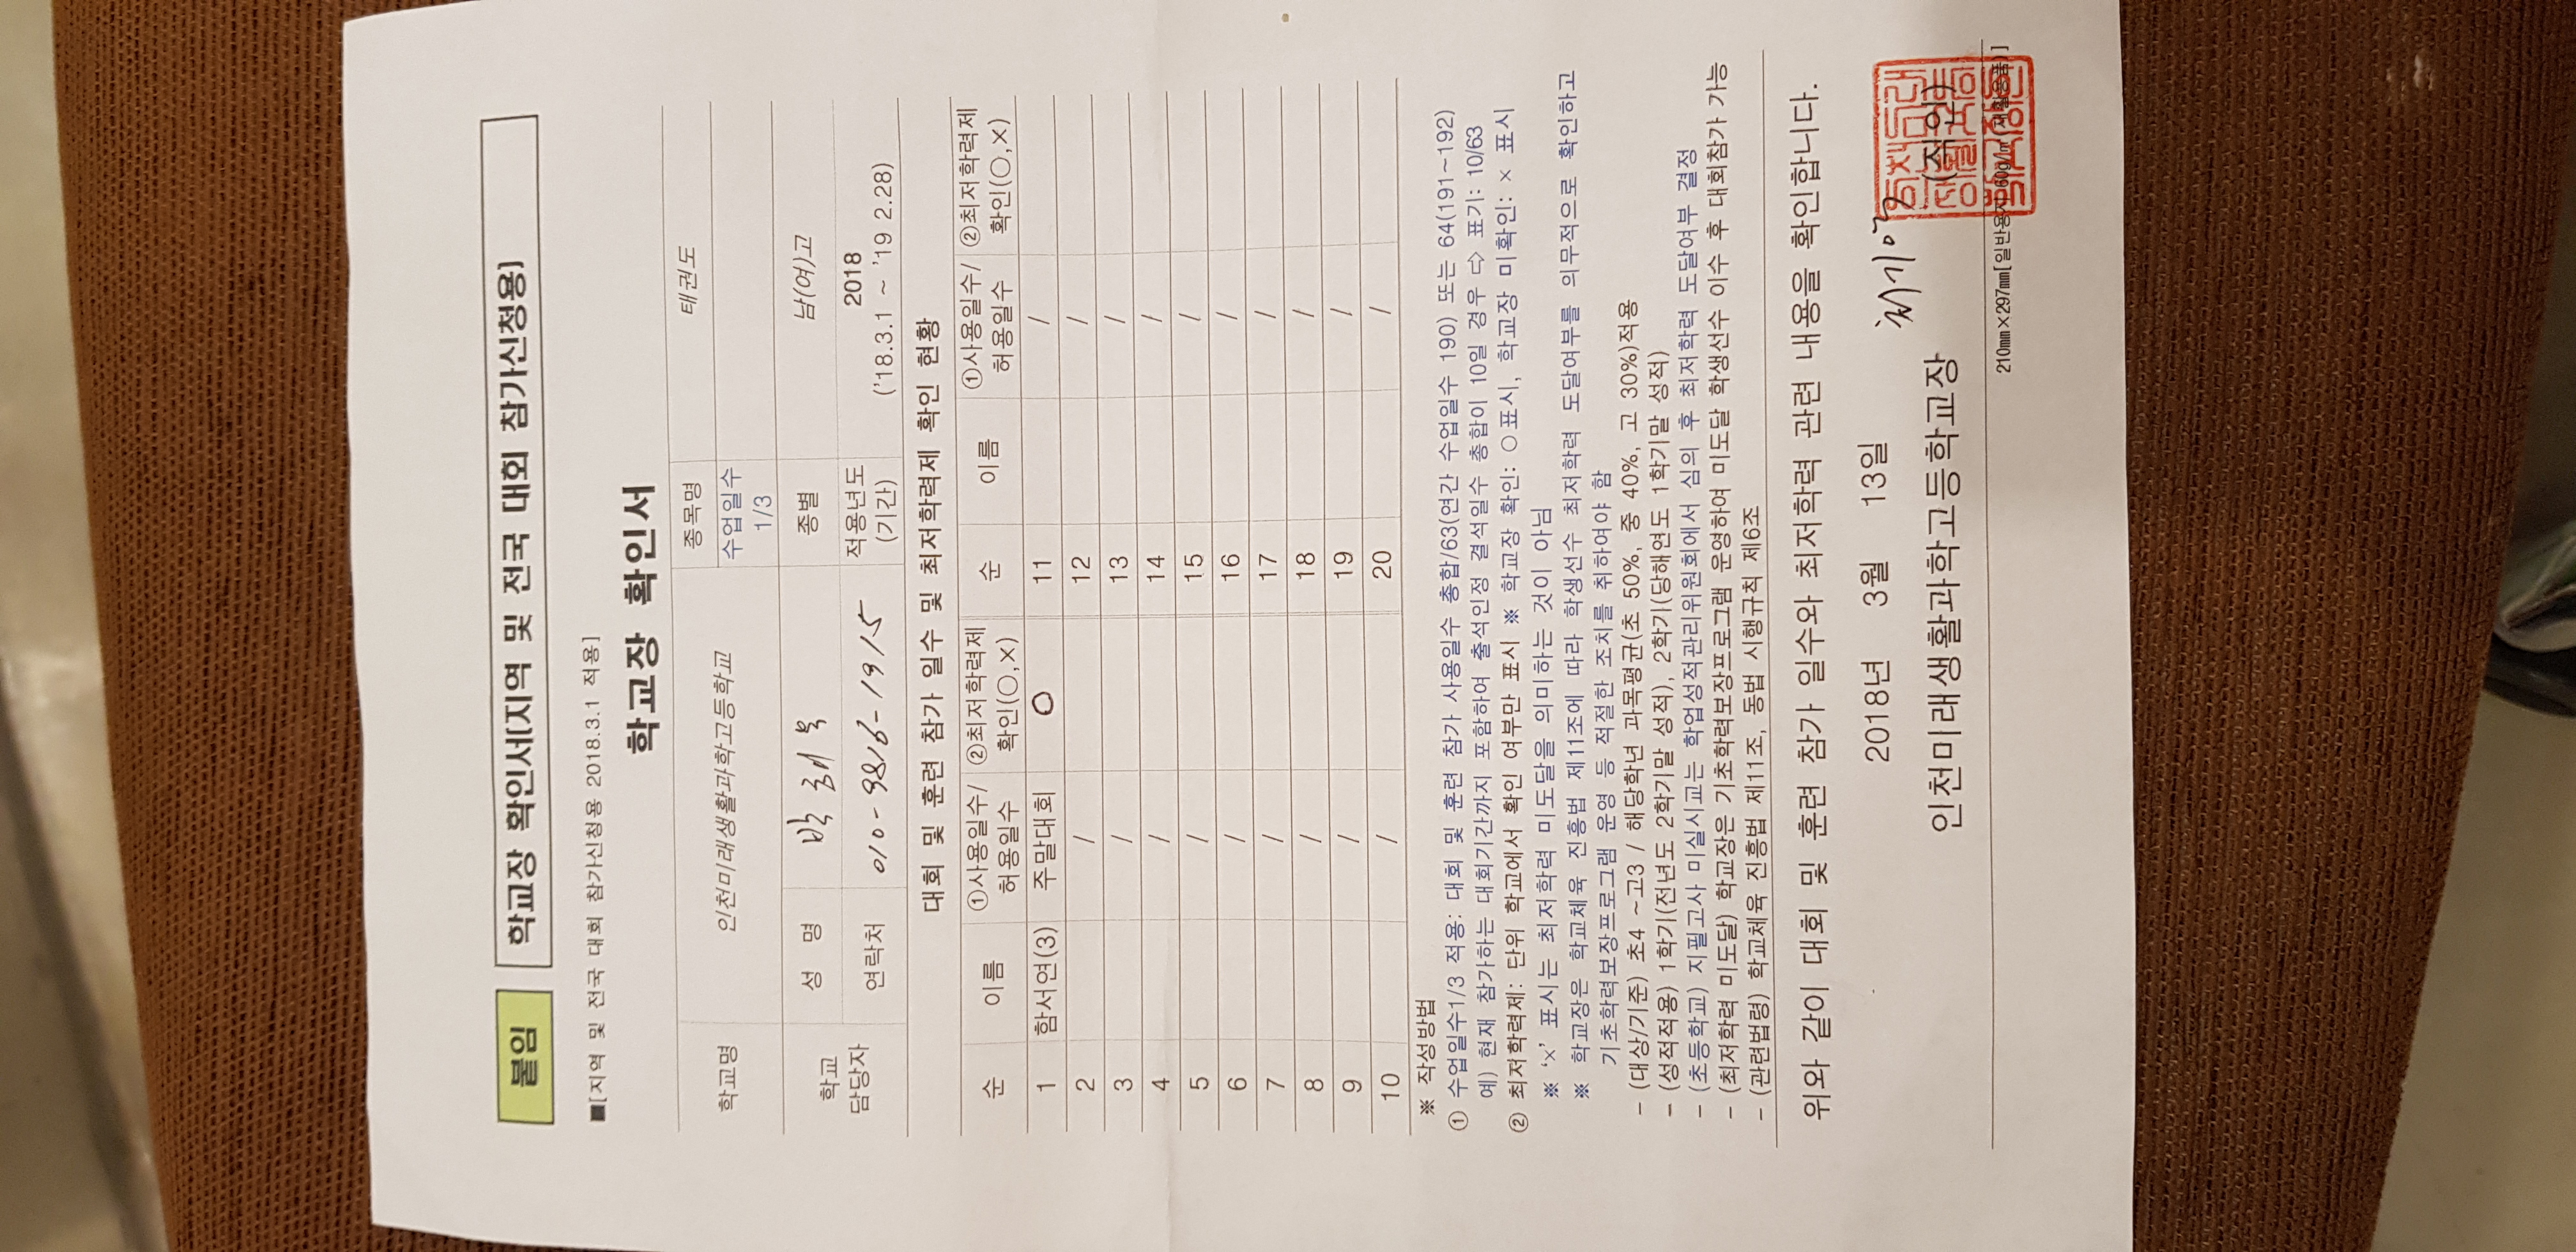 붙임 학교장 확인서[지역 및 전국 대회 참가신청용]
■[지역 및 전국 대회 참가신청용 2018.3.1 적용]
학교장 확인서
학교명 인천미래생활과학고등학교 종목명 태권도
수업일수 1/3
학교 담당자 성 명 종별 남(여)고
연락처 010-9816-1915 적용년도 (기간) 2018 ('18.3.1 ~ '19 2.28)
대회 및 훈련 참가 일수 및 최저학력제 확인 현황
순 이름 ①사용일수/허용일수 ②최저학력제 확인(○,×) 순 이름 ①사용일수/허용일수 ②최저학력제 확인(○,×)
1 함서연(3) 주말대회 O 11 /
2 / 12 /
3 / 13 /
4 / 14 /
5 / 15 /
6 / 16 /
7 / 17 /
8 / 18 /
9 / 19 /
10 / 20 /
※ 작성방법
① 수업일수1/3 적용: 대회 및 훈련 참가 사용일수 총합/63(연간 수업일수 190) 또는 64(191~192)
예) 현재 참가하는 대회기간까지 포함하여 출석인정 결석일수 총합이 10일 경우 ⇨ 표기: 10/63
② 최저학력제: 단위 학교에서 확인 여부만 표시 ※ 학교장 확인: ○ 표시, 학교장 미확인: × 표시
※ '×' 표시는 최저학력 미도달을 의미하는 것이 아님
※ 학교장은 학교체육 진흥법 제11조에 따라 학생선수 최저학력 도달여부를 의무적으로 확인하고
기초학력보장프로그램 운영 등 적절한 조치를 취하여야 함
- (대상/기준) 초4 ~고3 / 해당학년 과목평균(초 50%, 중 40%, 고 30%)적용
- (성적적용) 1학기(전년도 2학기말 성적), 2학기(당해연도 1학기말 성적)
- (초등학교) 지필고사 미실시교는 학업성적관리위원회에서 심의 후 최저학력 도달여부 결정
- (최저학력 미도달) 학교장은 기초학력보장프로그램 운영하여 미도달 학생선수 이수 후 대회참가 가능
- (관련법령) 학교체육 진흥법 제11조, 동법 시행규칙 제6조
위와 같이 대회 및 훈련 참가 일수와 최저학력 관련 내용을 확인합니다.
2018년 3월 13일
인천미래생활과학고등학교장 (직인)
210㎜×297㎜[일반용지 60g/㎡(재활용품)]